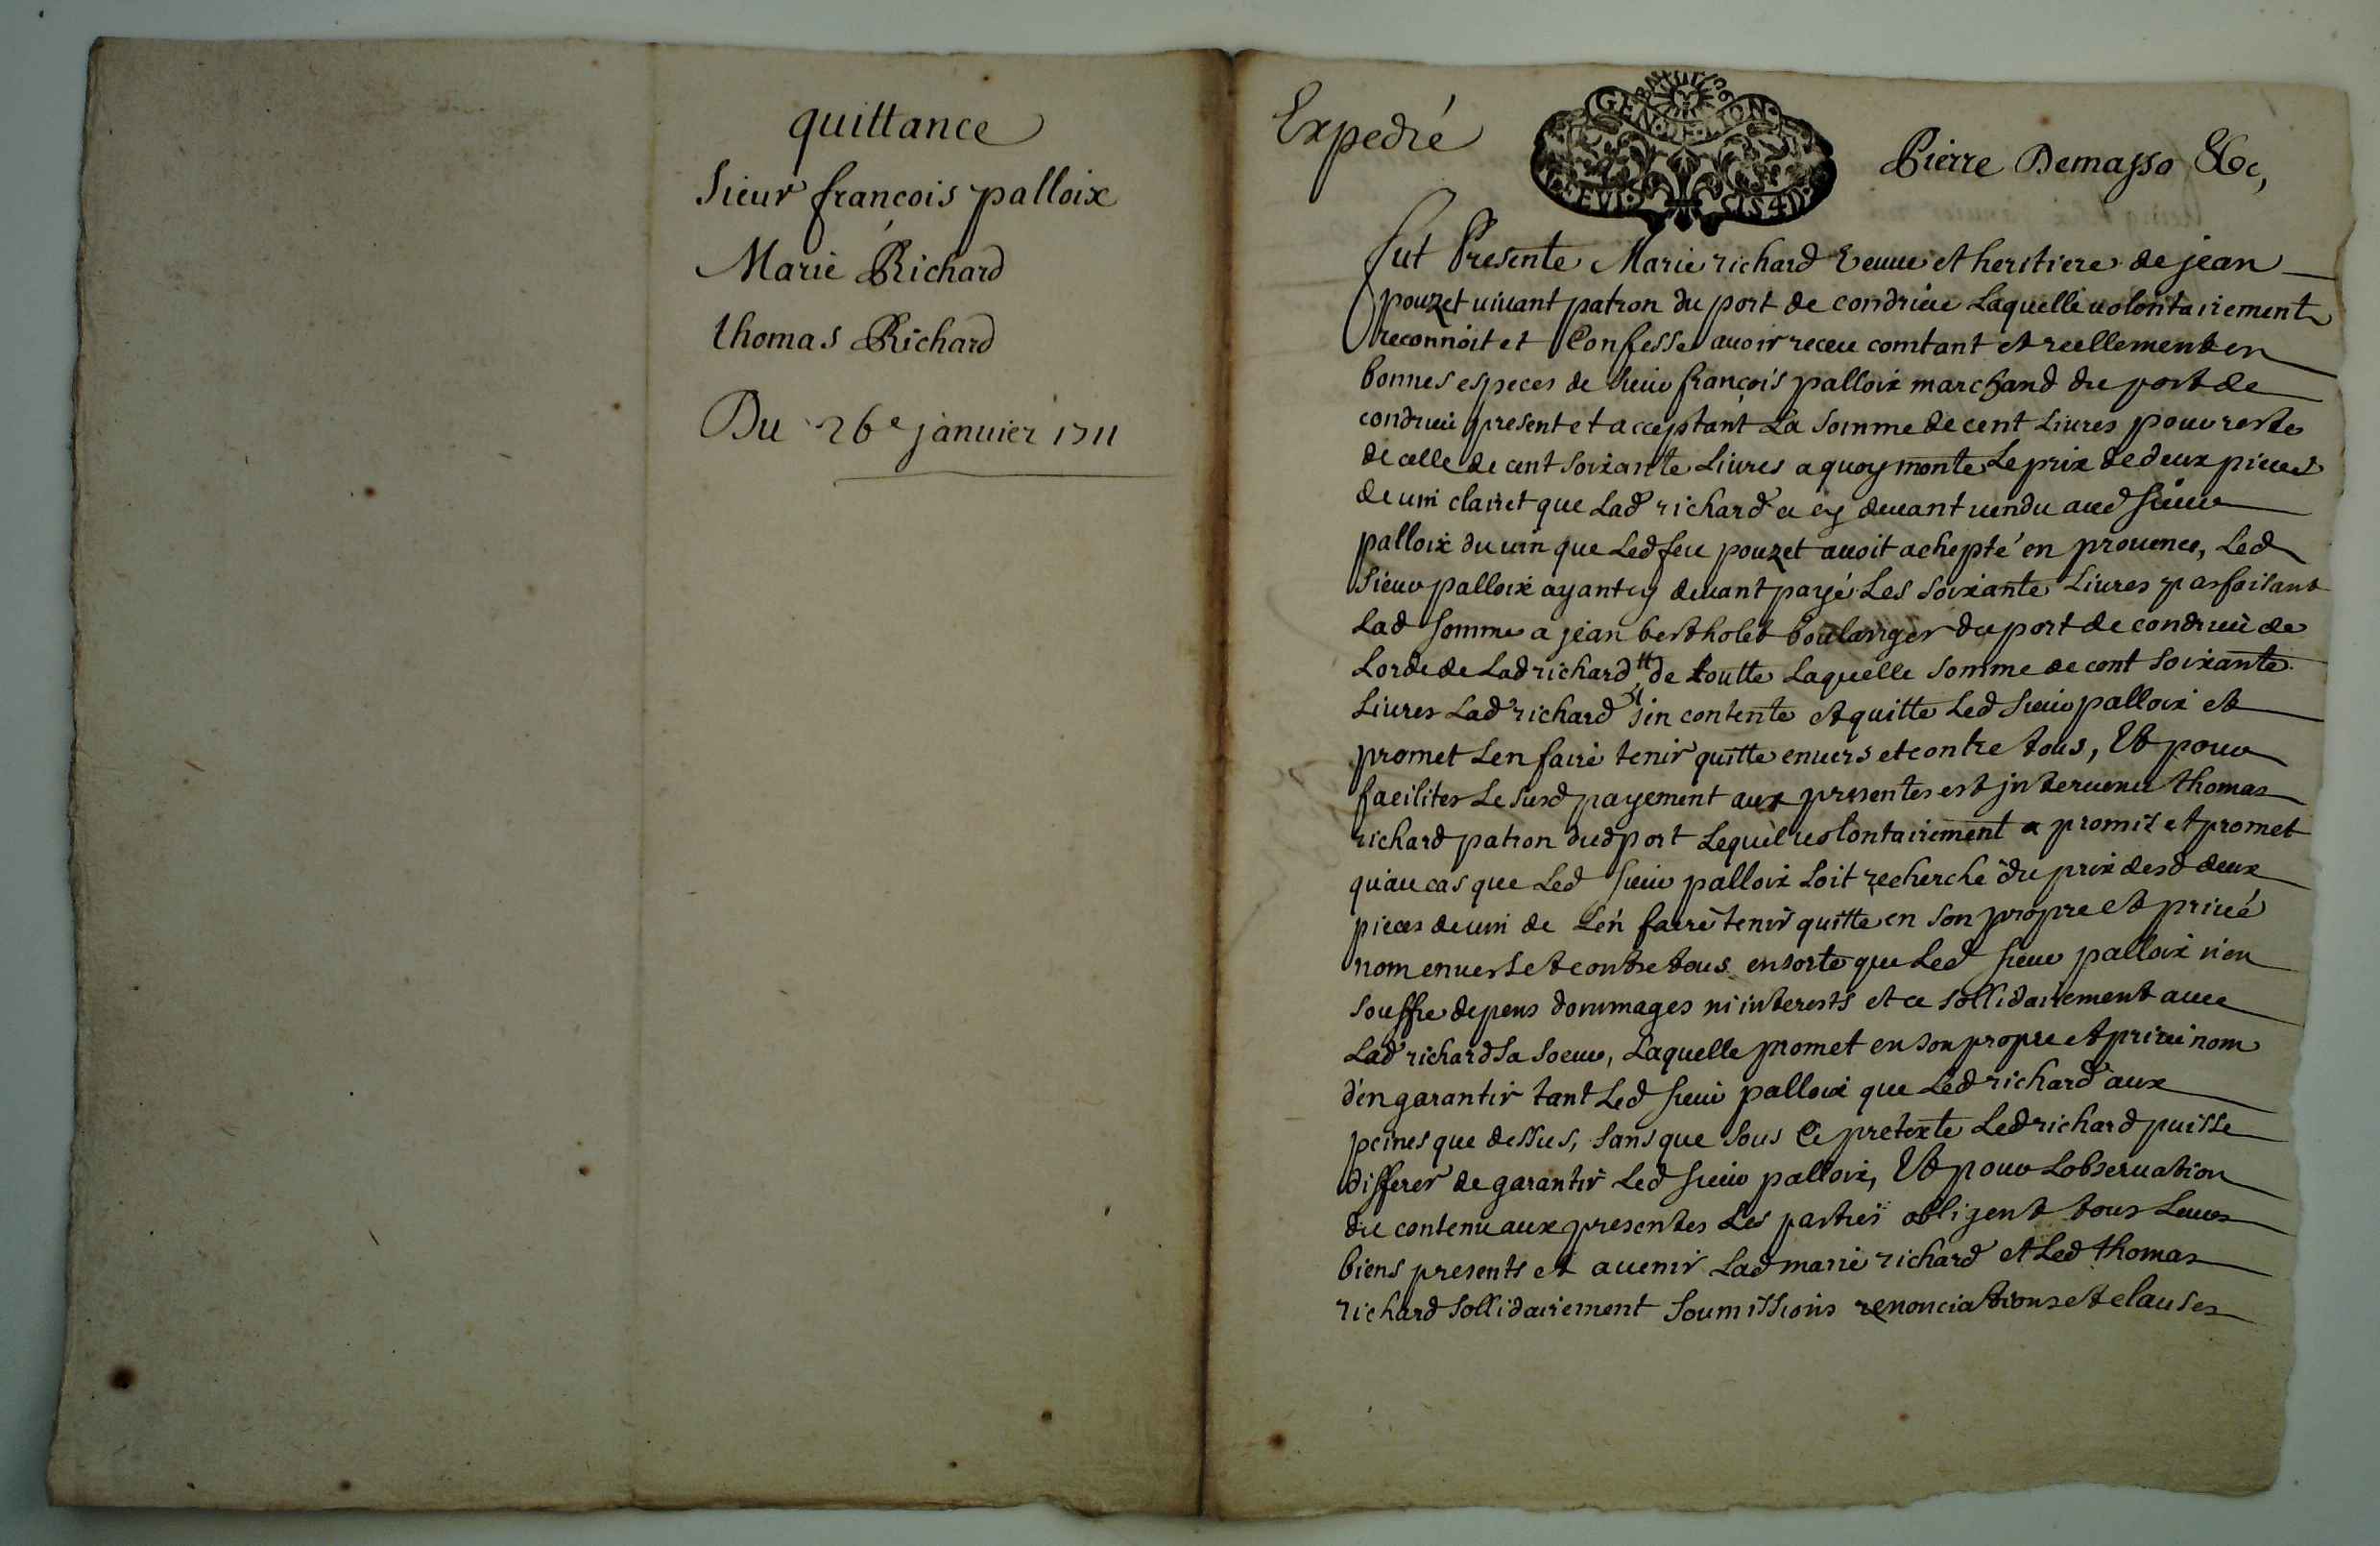 quittance
Sieur françois palloix
Marie Richard
thomas Richard
Du 26e januier 1711
Expedié
GEN DE LION
Pierre Demasso &c,
fut Presente Marie richard veuue et heritiere de jean
pouzet uiuant patron du port de condrieu Laquelle uolontairement
reconnoit et Confesse auoir receu comtant et reellement en
bonnes especes de sieur françois palloix marchand du port de
condrieu present et acceptant La somme de cent Liures pour reste
de celle de cent soixante Liures a quoy monte Le prix de deux pieces
de uin clairet que Lad richard a cy deuant uendu aud sieur
palloix du uin que Led feu pouzet auoit achepté en prouence, Led
sieur palloix ayant cy deuant payé Les soixante Liures parfaisant
Lad somme a jean bertholet boulanger du port de condrieu de
Lorde de Lad richard, de toutte Laquelle somme de cent soixante
Liures Lad richard s'in contente et quitte Led sieur palloix et
promet Len faire tenir quitte enuers et contre tous, Et pour
faciliter Le susd payement aux presentes est interuenu thomas
richard patron dud port Lequel uolontairement a promis et promet
qu'au cas que Led sieur palloix soit recherché du prix desd deux
pieces de uin de L'en faire tenir quitte en son propre et priué
nom enuers et contre tous en sorte que Led sieur palloix n'en
souffre depens dommages ni interests et ce sollidairement auec
Lad richard sa soeur, Laquelle promet en son propre et priué nom
d'en garantir tant Led sieur palloix que Led richard aux
peines que dessus, sans que sous Ce pretexte Led richard puisse
differer de garantir Led sieur palloix, Et pour Lobseruation
du contenu aux presentes Les parties obligent tous Leurs
biens presents et auenir Lad marie richard et Led thomas
richard sollidairement soumissions renonciations et clauses